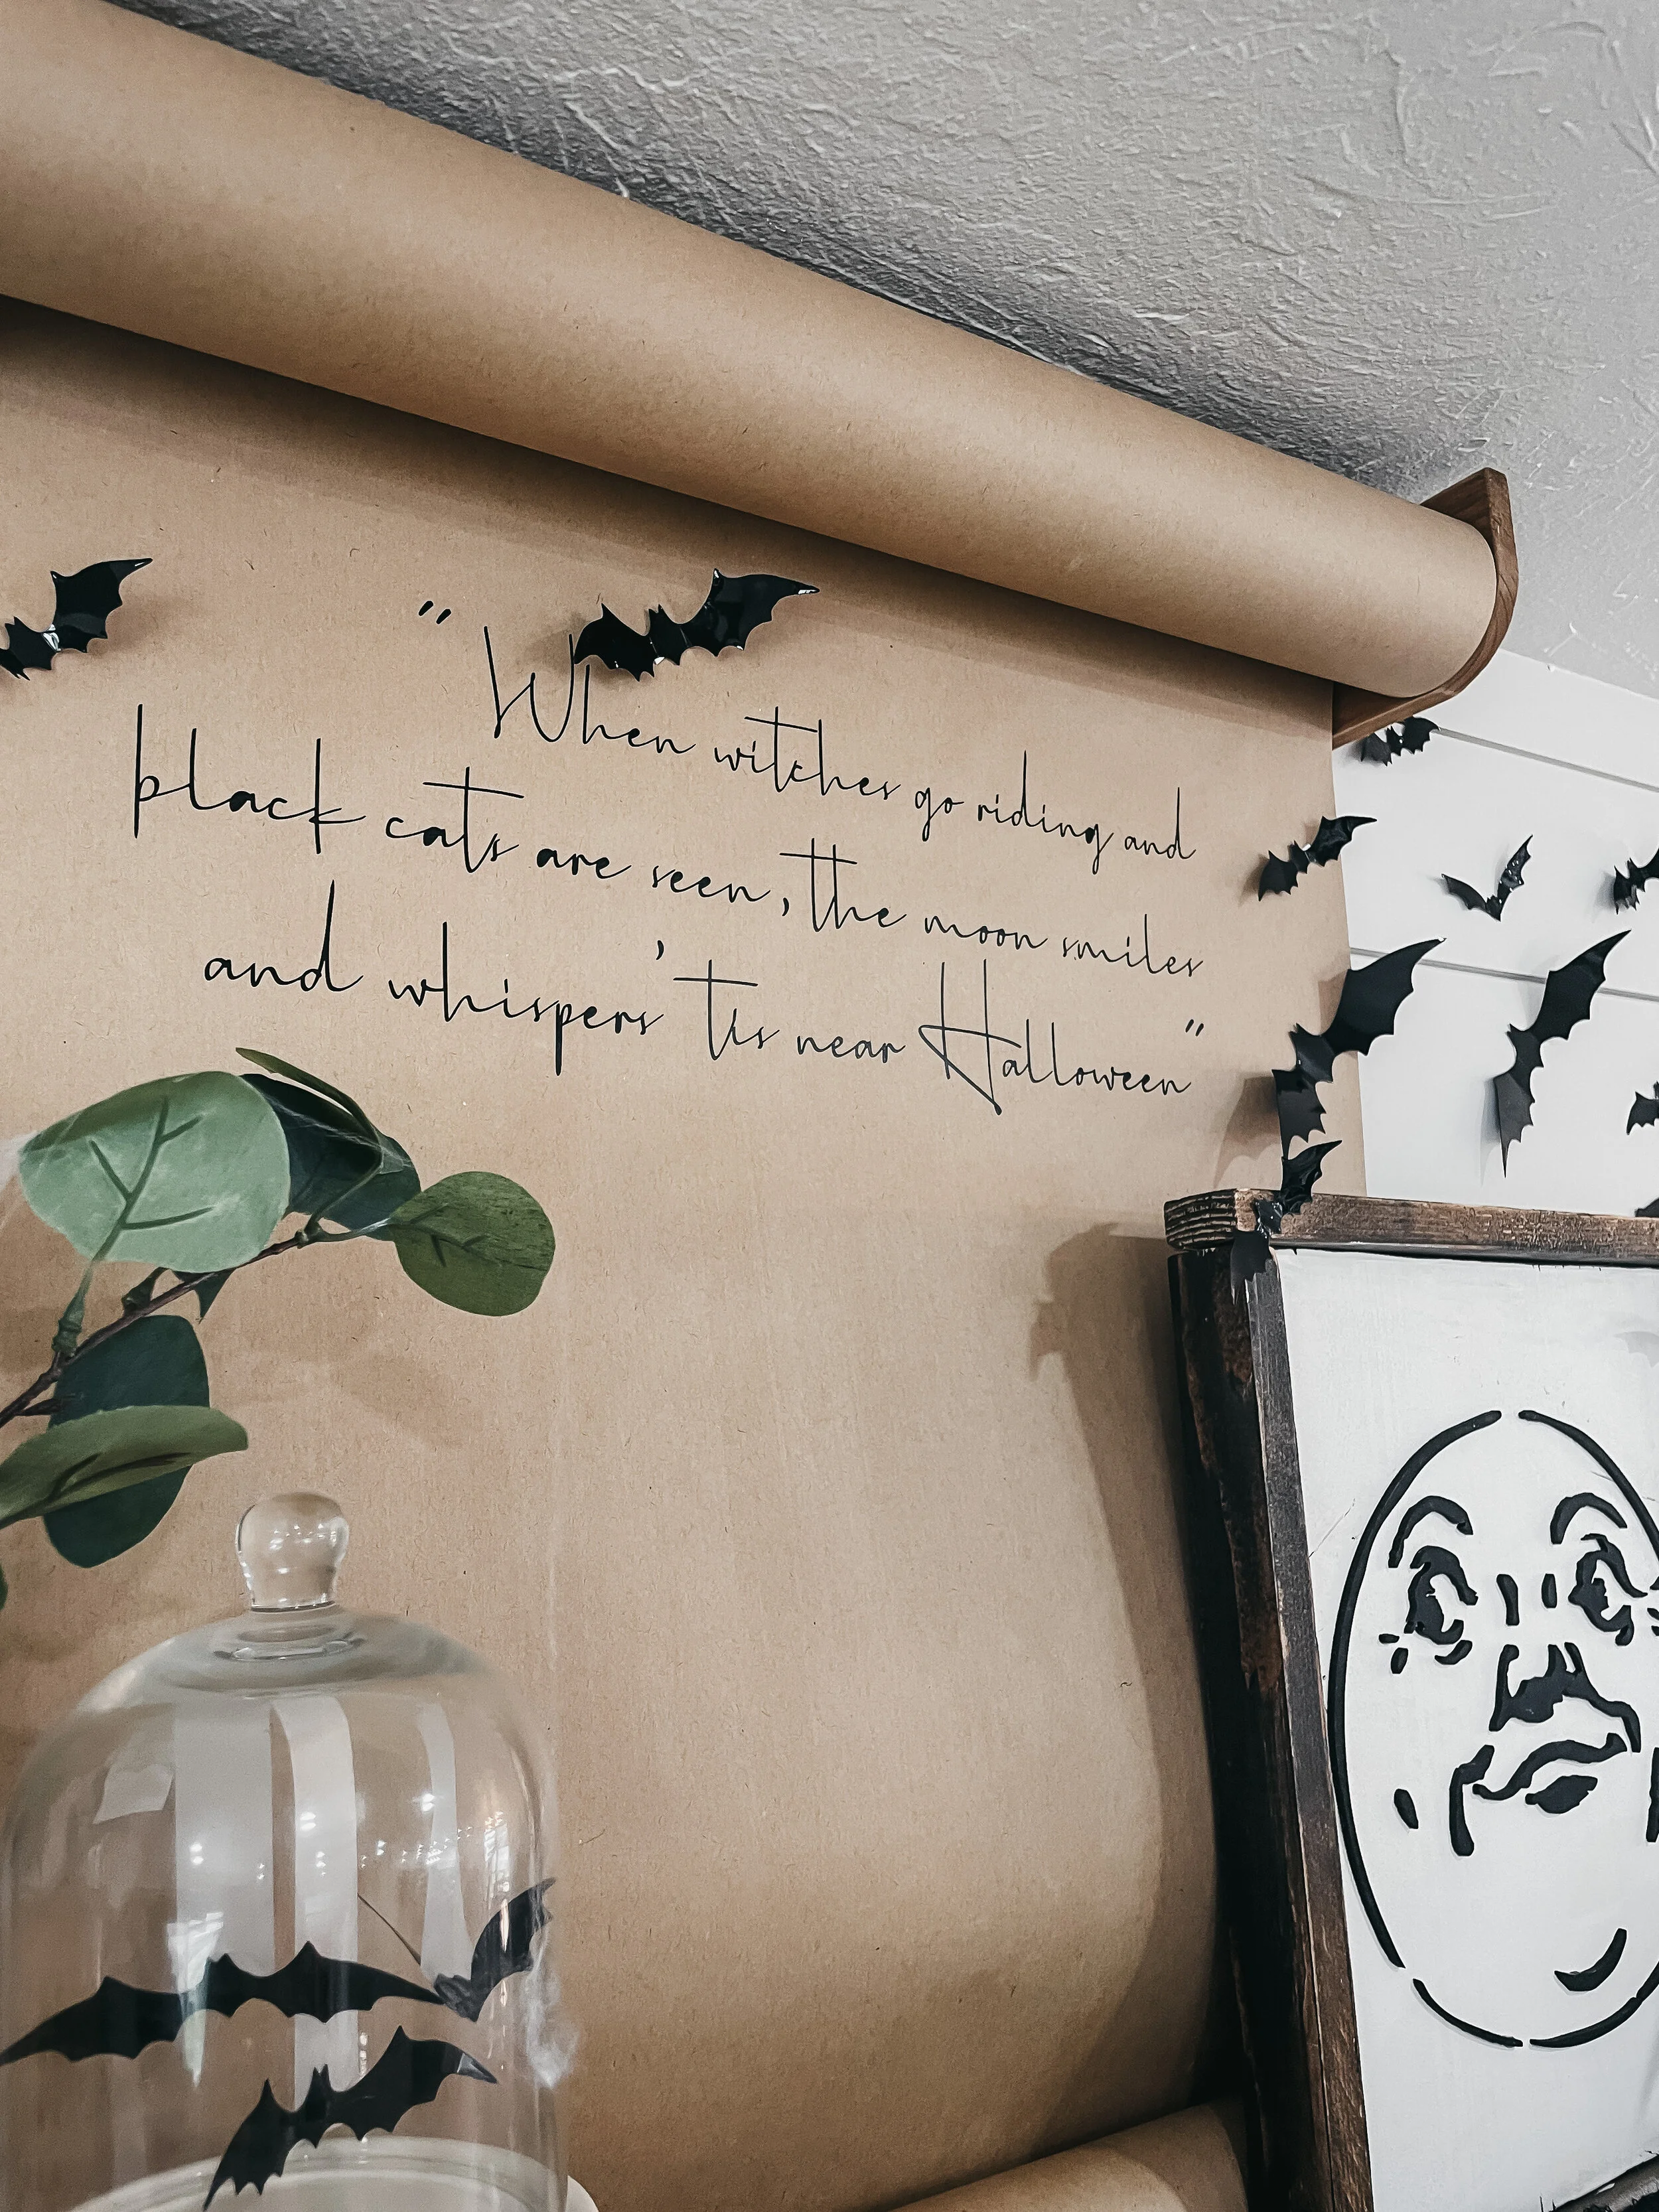 "When witches go riding and
black cats are seen, the moon smiles
and whispers 'tis near Halloween"